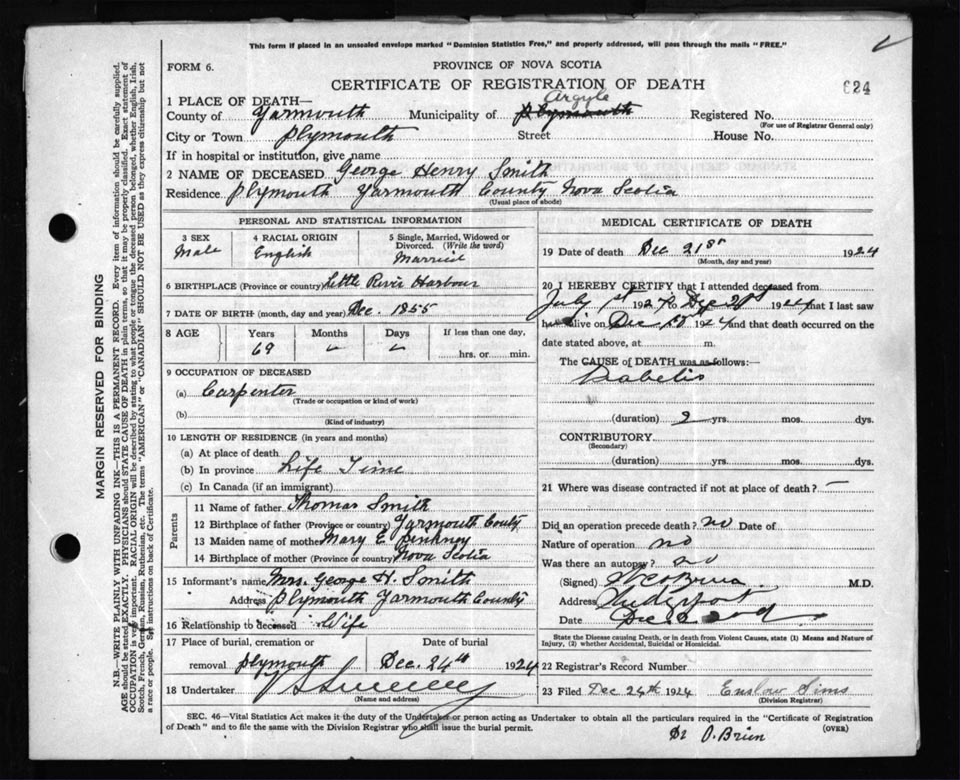 This form if placed in an unsealed envelope marked "Dominion Statistics Free," and properly addressed, will pass through the mails "FREE."
FORM 6.
PROVINCE OF NOVA SCOTIA
CERTIFICATE OF REGISTRATION OF DEATH
624
1 PLACE OF DEATH—
County of Yarmouth Municipality of Plymouth Argyle Registered No.
(For use of Registrar General only)
City or Town Plymouth Street House No.
If in hospital or institution, give name
2 NAME OF DECEASED George Henry Smith
Residence Plymouth Yarmouth County Nova Scotia
(Usual place of abode)
PERSONAL AND STATISTICAL INFORMATION
3 SEX Male
4 RACIAL ORIGIN English
5 Single, Married, Widowed or Divorced. (Write the word) Married
6 BIRTHPLACE (Province or country) Little River Harbour
7 DATE OF BIRTH (month, day and year) Dec. 1855
8 AGE Years Months Days If less than one day,
69 hrs. or min.
9 OCCUPATION OF DECEASED
(a) Carpenter
(Trade or occupation or kind of work)
(b)
(Kind of industry)
10 LENGTH OF RESIDENCE (in years and months)
(a) At place of death
(b) In province Life Time
(c) In Canada (if an immigrant)
Parents
11 Name of father Thomas Smith
12 Birthplace of father (Province or country) Yarmouth County
13 Maiden name of mother Mary E. Pinkney
14 Birthplace of mother (Province or country) Nova Scotia
15 Informant's name Mrs. George H. Smith
Address Plymouth Yarmouth County
16 Relationship to deceased Wife
17 Place of burial, cremation or removal Plymouth
Date of burial Dec. 24th 1924
18 Undertaker
(Name and address)
MEDICAL CERTIFICATE OF DEATH
19 Date of death Dec 21st 1924
(Month, day and year)
20 I HEREBY CERTIFY that I attended deceased from
July 1st 192 to Dec 1924 that I last saw
h alive on Dec 1924 and that death occurred on the
date stated above, at m.
The CAUSE of DEATH was as follows:
Diabetis
(duration) 2 yrs. mos. dys.
CONTRIBUTORY
(Secondary)
(duration) yrs. mos. dys.
21 Where was disease contracted if not at place of death? —
Did an operation precede death? no Date of
Nature of operation no
Was there an autopsy? no
(Signed) M.D.
Address
Date Dec 22nd
State the Disease causing Death, or in death from Violent Causes, state (1) Means and Nature of
Injury, (2) whether Accidental, Suicidal or Homicidal.
22 Registrar's Record Number
23 Filed Dec 24th 1924 Enslow Sims
(Division Registrar)
SEC. 46—Vital Statistics Act makes it the duty of the Undertaker or person acting as Undertaker to obtain all the particulars required in the "Certificate of Registration
of Death" and to file the same with the Division Registrar who shall issue the burial permit.
(OVER)
Dr O'Brien
MARGIN RESERVED FOR BINDING
N.B.—WRITE PLAINLY WITH UNFADING INK—THIS IS A PERMANENT RECORD. Every item of information should be carefully supplied.
AGE should be stated EXACTLY. PHYSICIANS should STATE CAUSE OF DEATH in plain terms, so that it may be properly classified. Exact statement of
OCCUPATION is very important. RACIAL ORIGIN will be described by stating to what people or tongue the deceased person belonged, whether English, Irish,
Scotch, French, German, Russian, Ruthenian, etc. The terms "AMERICAN" or "CANADIAN" SHOULD NOT BE USED as they express citizenship but not
a race or people. See instructions on back of Certificate.